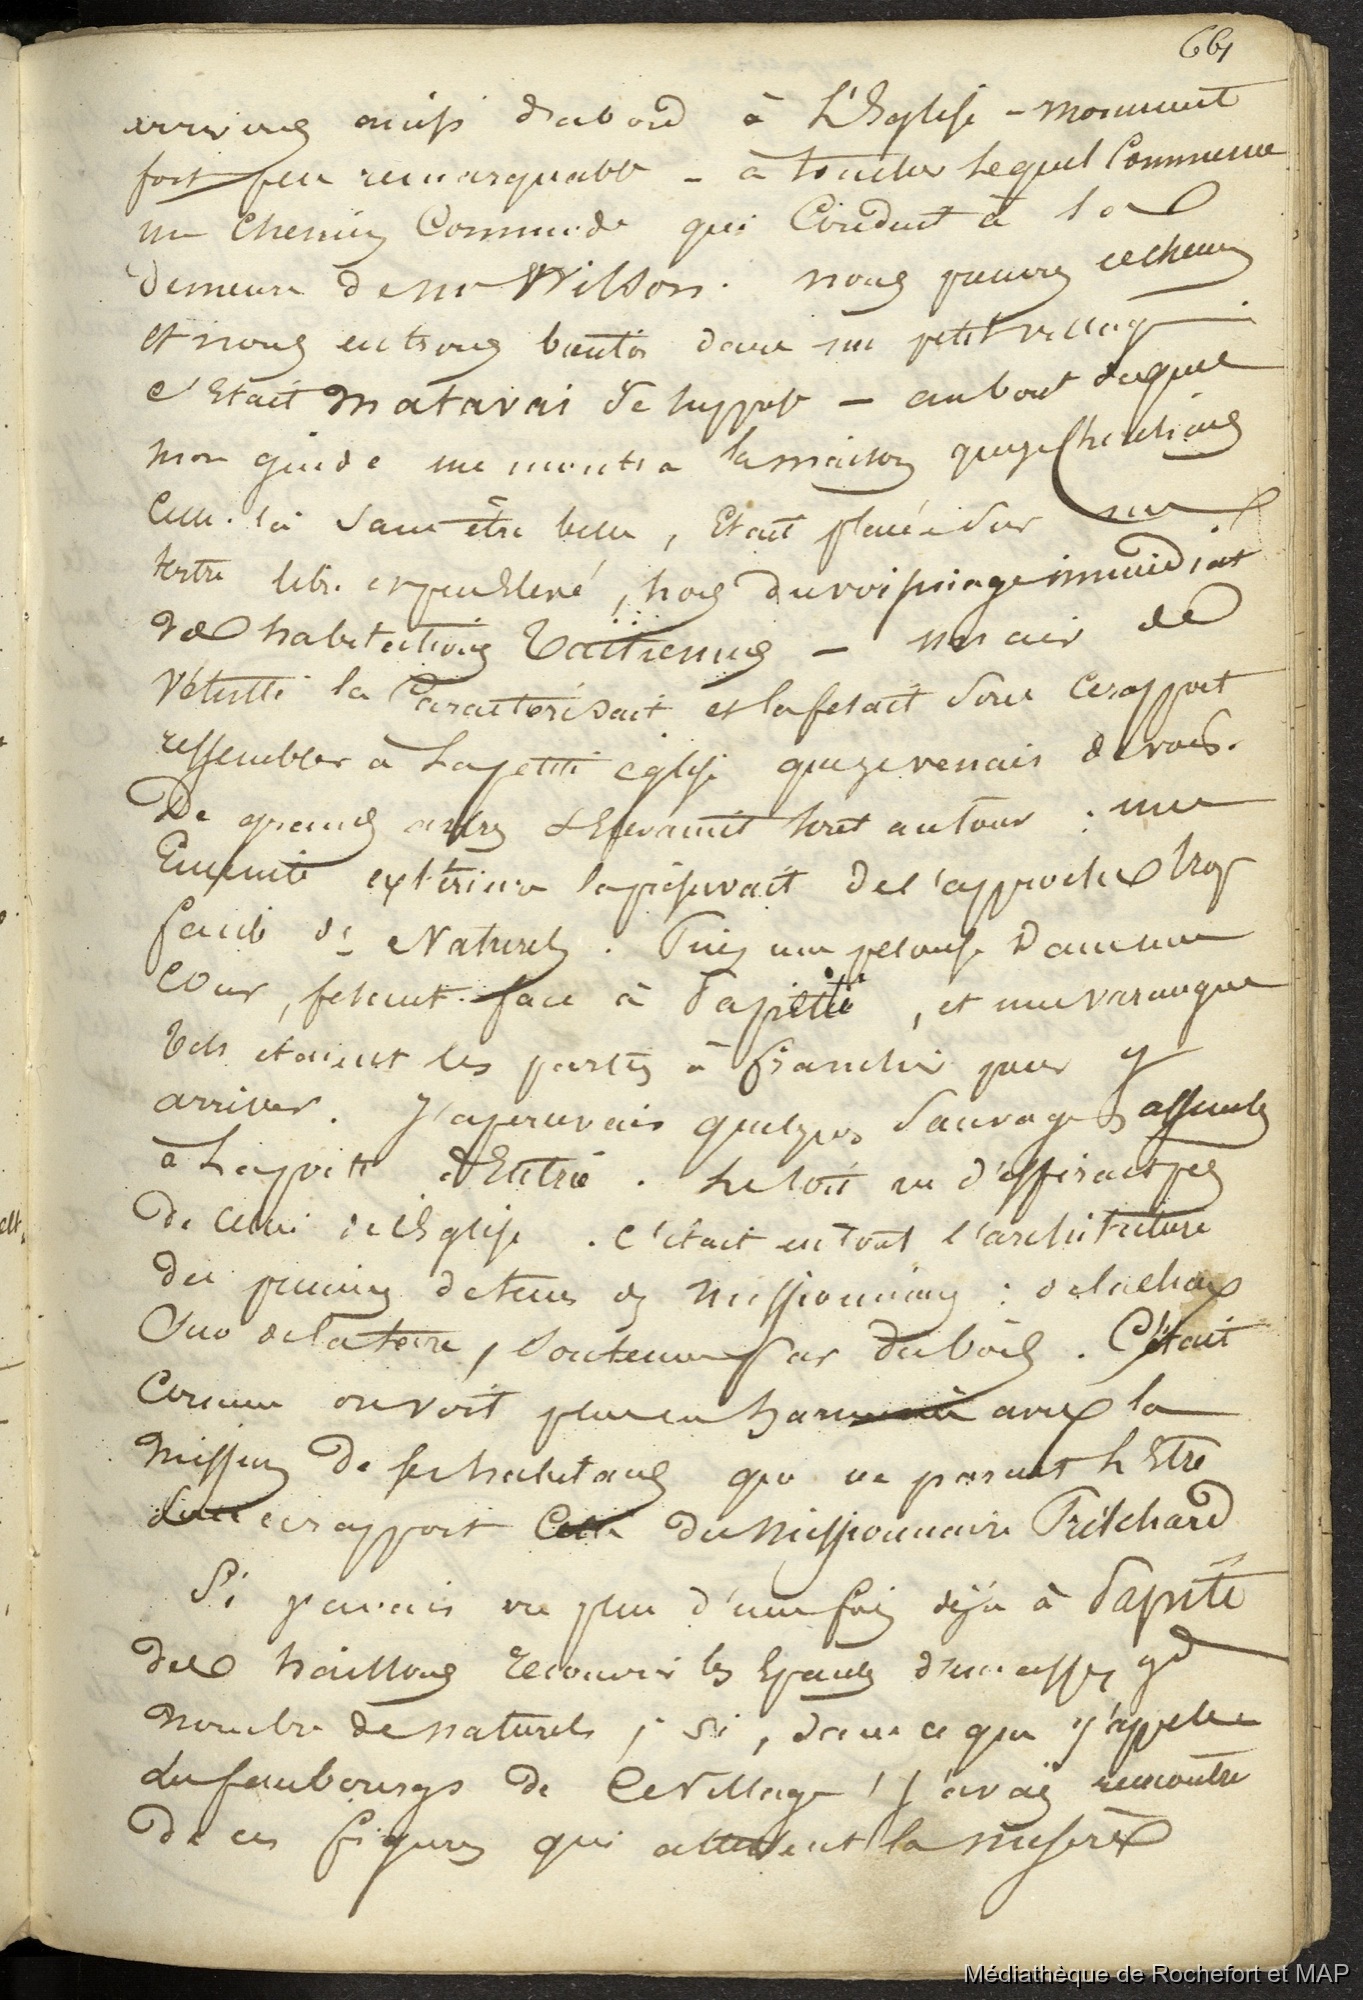 661
arrivons ainsi d'abord à L'Eglise - monument
fort peu remarquable - à toucher lequel Commence
un Chemin Commode qui Conduit à la
demeure de mr Wilson. nous primes ce chemin
et nous entrons bientôt dans un petit village
C'Etait Matavai de huppab - au bout duquel
mon guide me montra la maison que je Cherchais
Celle-là sans être belle, Etait placée sur un
tertre libre et peu Elevé, hors du voisinage immédiat
des habitations Taïtiennes - un air de
Vétusté la Caractérisait et la fesait sous ce rapport
ressembler à La petite église que je venais de voir.
De grands arbres s'Elevaient tout autour : une
Enceinte extérieure la préservait de l'approche trop
facile des Naturels. Puis une pelouse dans une
Cour, fesant face à Papiété, et une varangue
tels étaient les parties à franchir pour y
arriver. J'apercevais quelques Sauvages assemblés
à La porte d'Entrée. Le toit ne différait pas
de Celui de l'Eglise. C'était en tout l'architecture
des premiers de tems des Missionnaires : de la chaux
ou de la terre, soutenue par du bois. C'était
Comme on voit plus en harmonie avec la
mission de ses habitans que ne parait L'Etre
sous ce rapport Celle du Missionnaire Pritchard
Si j'avais vu plus d'une fois déjà à Papiété
des haillons recouvrir les Epaules d'un assez gd
nombre de naturels ; si, dans ce que j'appelle
les faubourgs de Ce Village, j'avais rencontré
de ces figures qui attestent la misère
Médiathèque de Rochefort et MAP